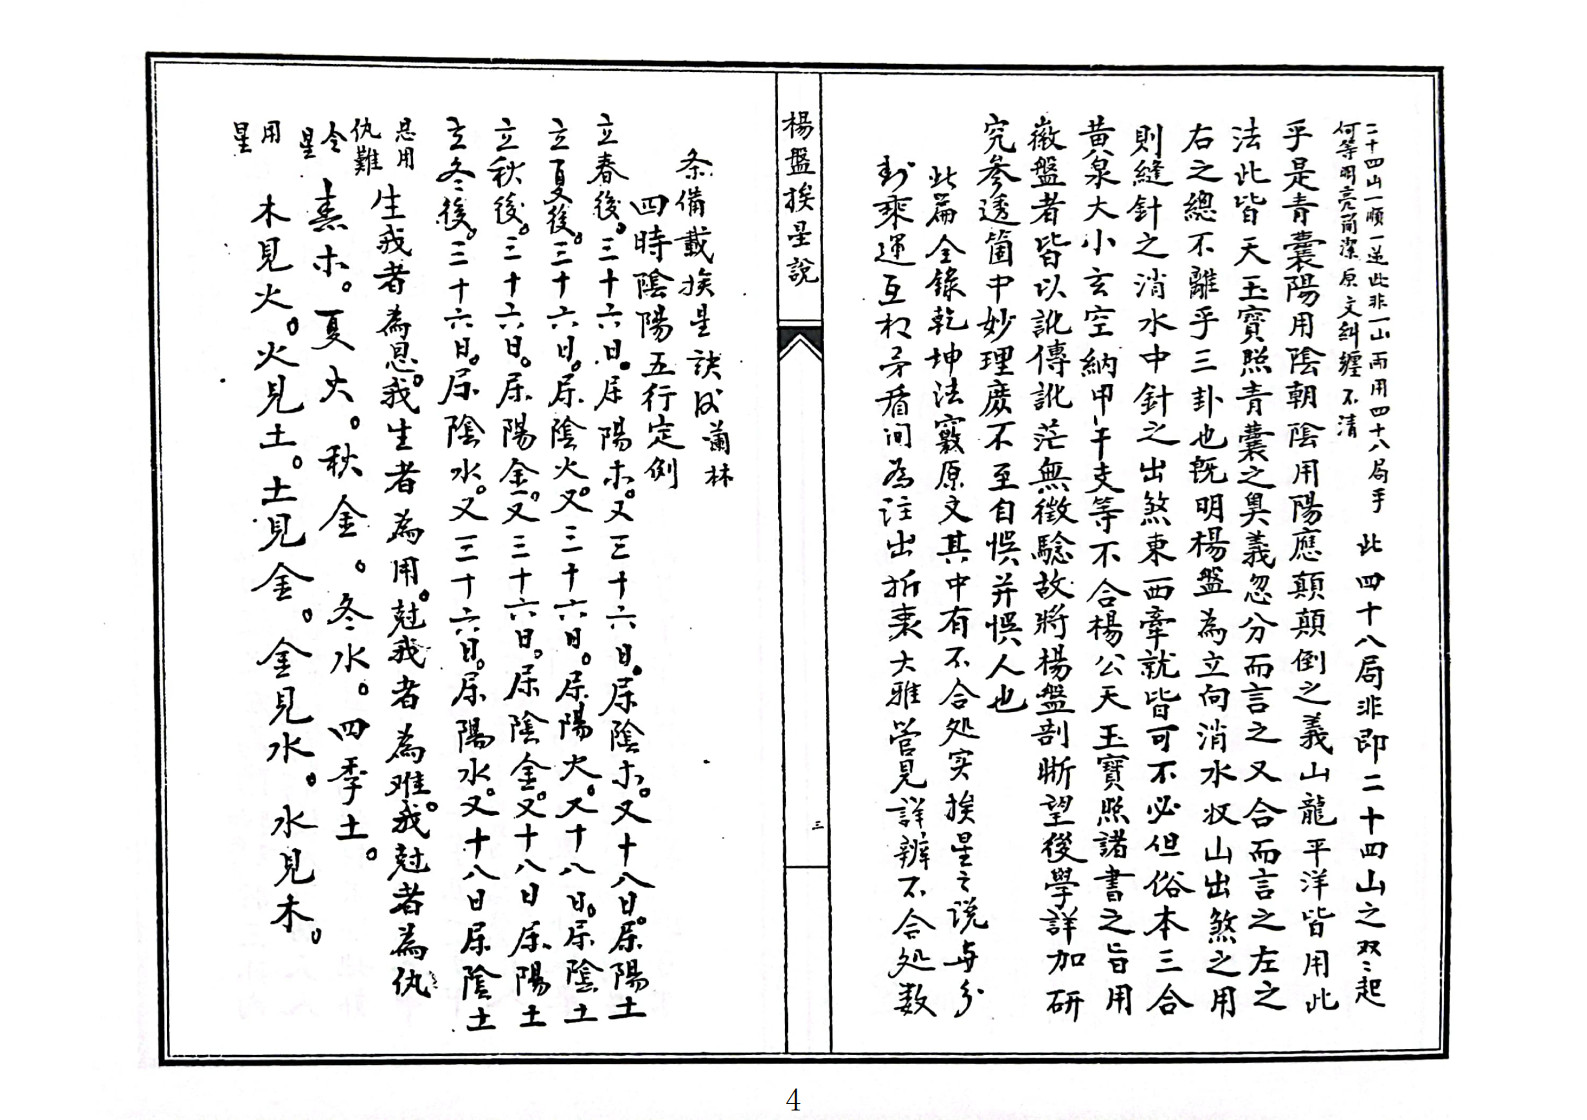 二十四山一順一逆此非一山兩用四十八局乎
何等明亮簡潔原文糾纏不清
此四十八局非即二十四山之双二起
乎是青囊陽用陰朝陰用陽應顛顛倒之義山龍平洋皆用此
法此皆天玉寶照青囊之奧義忽分而言之又合而言之左之
右之總不離乎三卦也既明楊盤為立向消水收山出煞之用
則縫針之消水中針之出煞東西牽就皆可不必但俗本三合
黃泉大小玄空納甲干支等不合楊公天玉寶照諸書之旨用
徽盤者皆以訛傳訛茫無徵驗故將楊盤剖晰望後學詳加研
究參透箇中妙理庶不至自悞并悞人也
此篇全錄乾坤法竅原文其中有不合処实挨星之说与分
封乘運互相矛盾间為註出折衷大雅管見詳辨不合処数
条備載挨星訣及蘭林
楊盤挨星說
三
四時陰陽五行定例
立春後。三十六日。屬陽木。又三十六日。屬陰木。又十八日。屬陽土
立夏後。三十六日。屬陰火。又三十六日。屬陽火。又十八日。屬陰土
立秋後。三十六日。屬陽金。又三十六日。屬陰金。又十八日屬陽土
立冬後。三十六日。屬陰水。又三十六日。屬陽水。又十八日屬陰土
恩用
仇難
生我者為恩。我生者為用。尅我者為难。我尅者為仇
令星
春木。夏火。秋金。冬水。四季土。
用星
木見火。火見土。土見金。金見水。水見木。
4